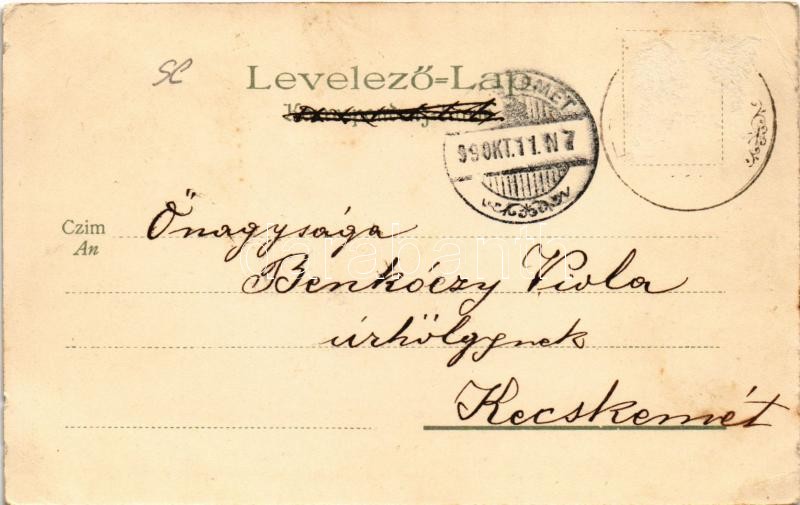 SC
Levelező=Lap
OMET
99 OKT. 11. N 7
Czim Őnagysága
An
Benkóczy Viola
úrhölgynek
Kecskemét
darabanth